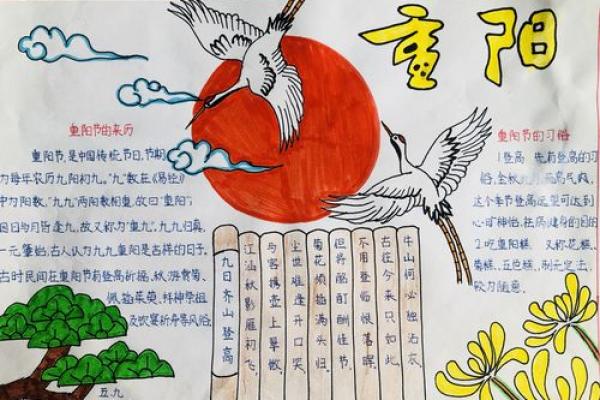 重阳
重阳节的来历
重阳节,是中国传统节日,节期
为每年农历九阳初九。"九"数在《易经》
中为阳数,"九九"两阳数相重,故曰"重阳";
因日与月皆逢九,故又称为"重九"。九九归真,
一元肇始,古人认为九九重阳是吉祥的日子,
古时民间在重阳节有登高祈福、秋游赏菊、
佩插茱萸、拜神祭祖
及饮宴祈寿等风俗。
五.九
九日齐山登高
江涵秋影雁初飞,
与客携壶上翠微。
尘世难逢开口笑,
菊花须插满头归。
但将酩酊酬佳节,
不用登临恨落晖。
古往今来只如此,
牛山何必独沾衣。
重阳节的习俗
1登高 先有登高的习
俗,金秋九月,高气爽,
这个季节登高远望可达到
心旷神怡、祛病健身的目的
2.吃重阳糕 又称花糕、
菊糕、五色糕,制无定法,
较为随意。